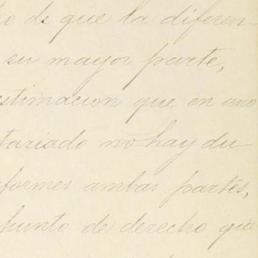 de que la diferen
su mayor parte,
estimacion que en uno
tariado no hay du
formes ambas partes,
punto de derecho que